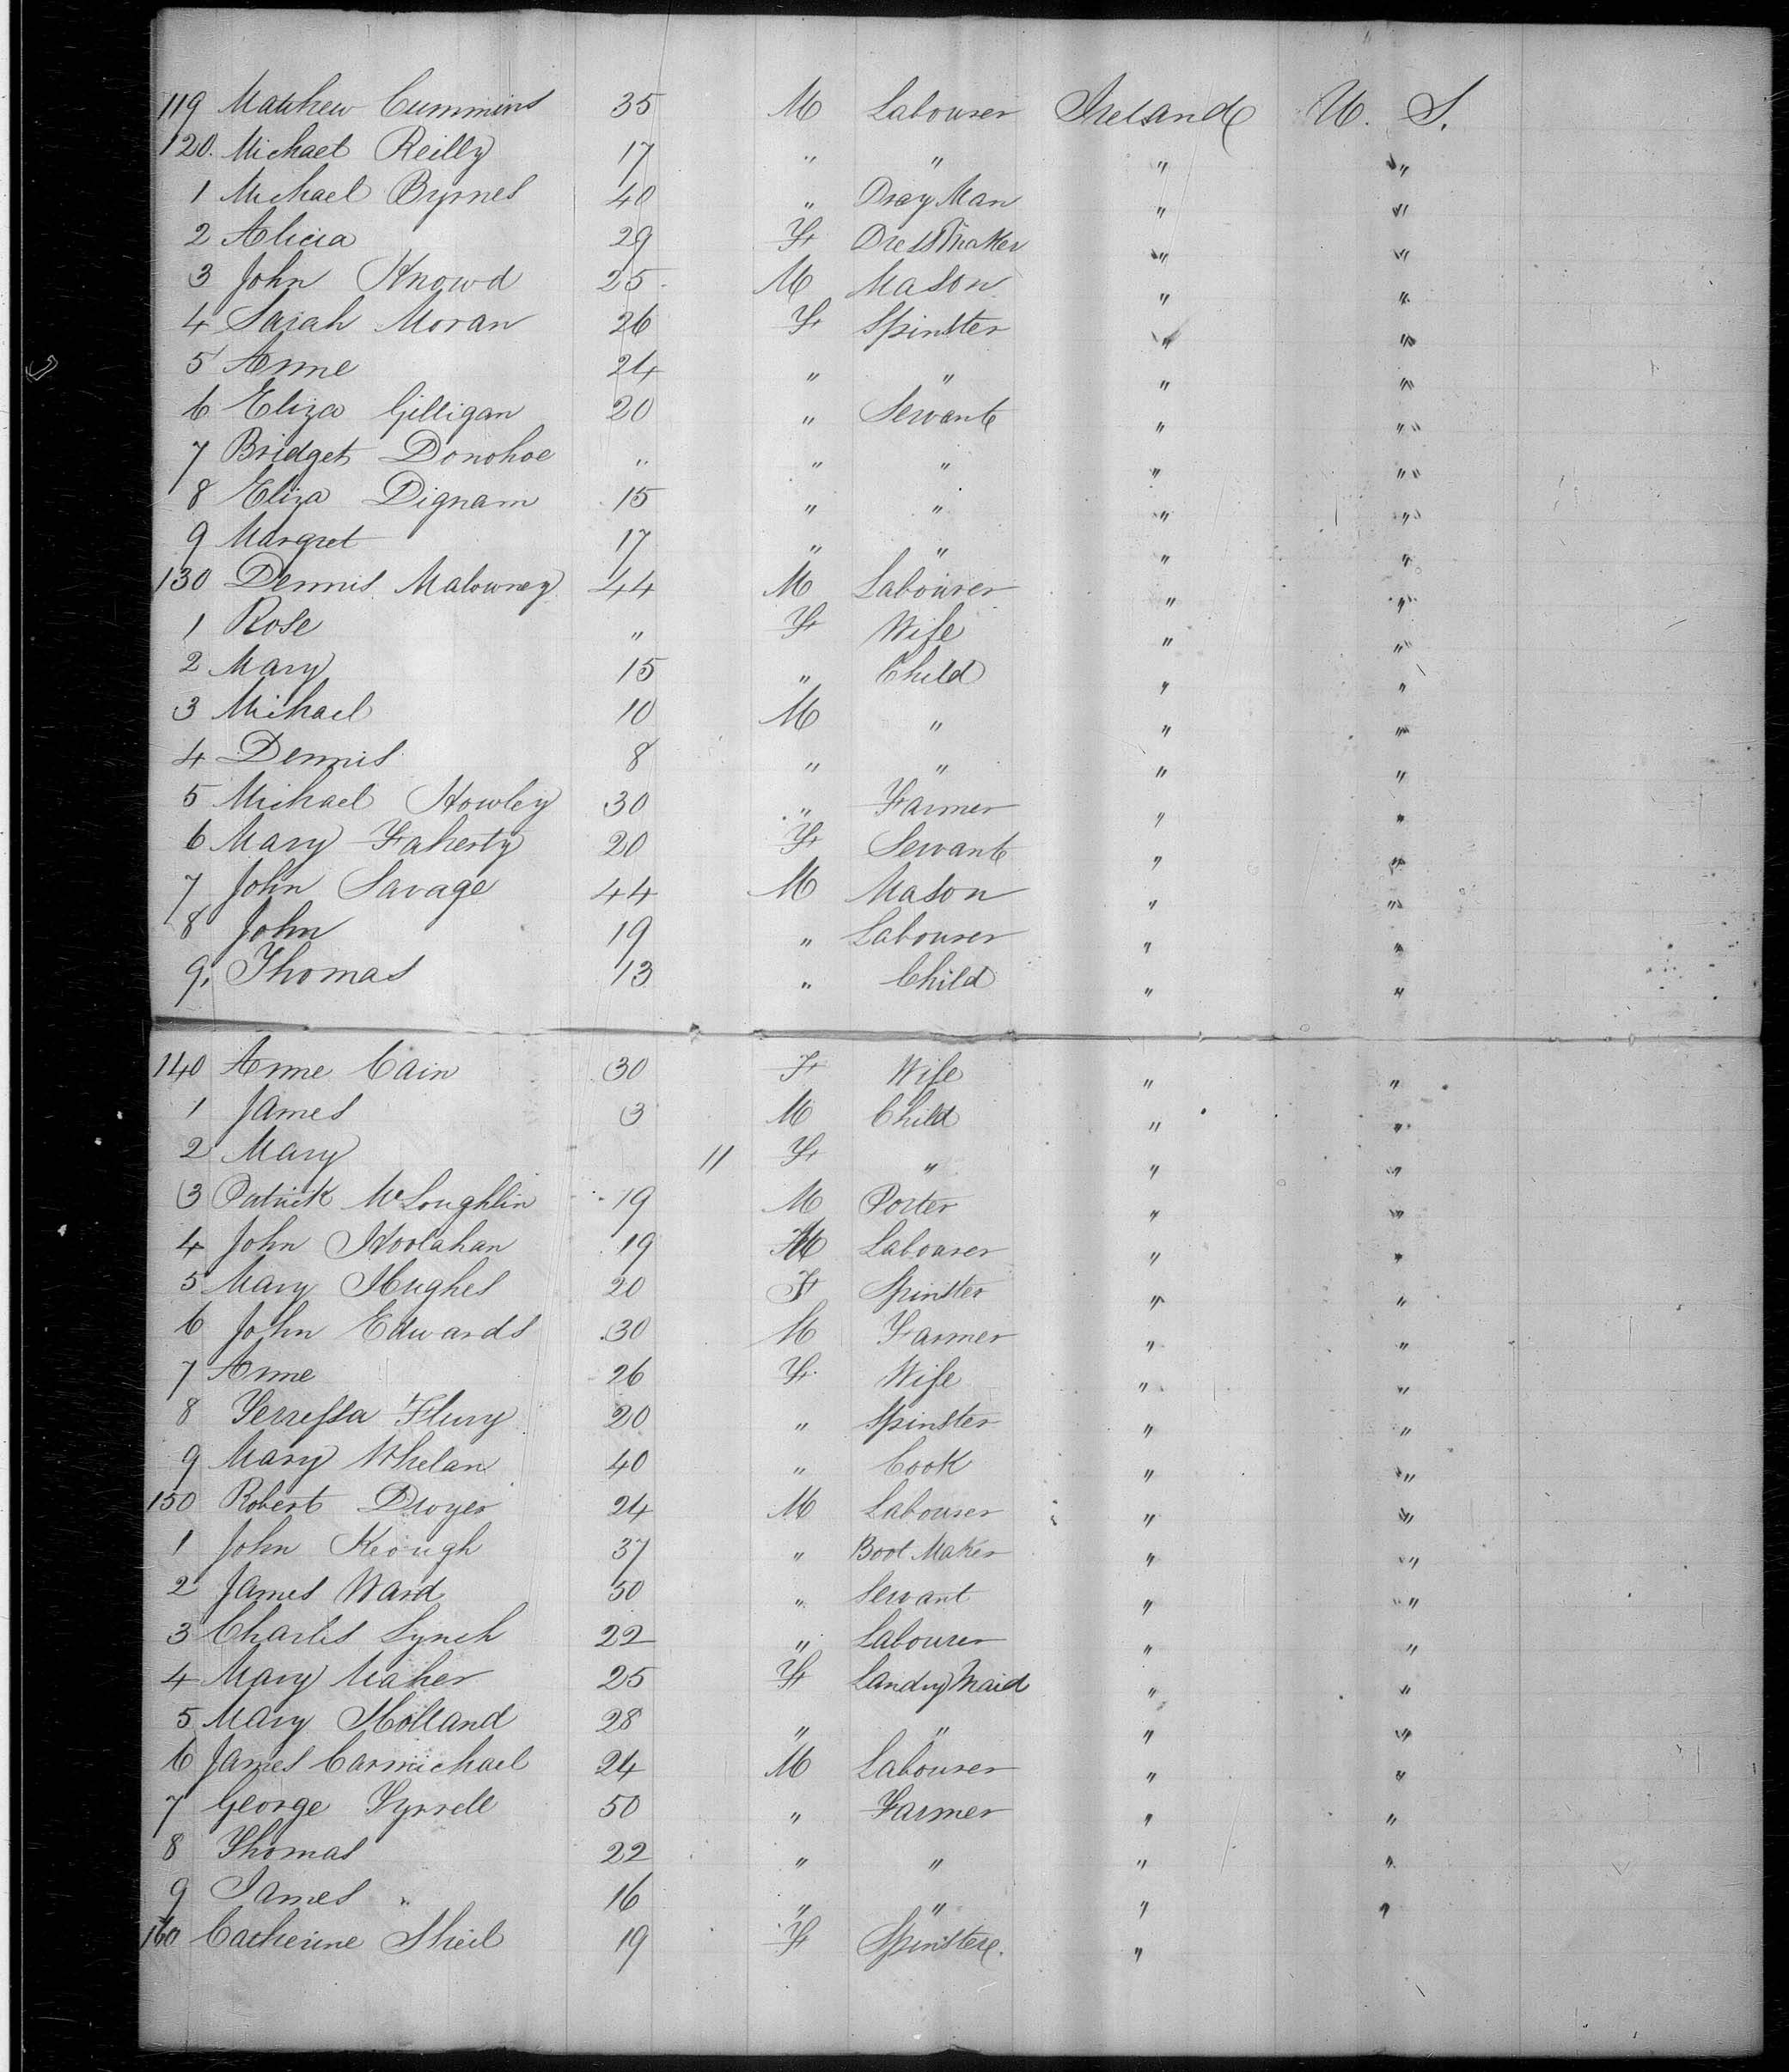 119 Matthew Cummins 35 M Labourer Ireland U. S.
120. Michael Reilly 17 " " " "
1 Michael Byrnes 40 " Dray Man " "
2 Alicia 29 F Dress Maker " "
3 John Knowd 25 M Mason " "
4 Sarah Moran 26 F Spinster " "
5 Anne 24 " " " "
6 Eliza Gilligan 20 " Servant " "
7 Bridget Donohoe " " " " "
8 Eliza Dignam 15 " " " "
9 Margret 17 " " " "
130 Dennis Malowney 44 M Labourer " "
1 Rose " F Wife " "
2 Mary 15 " Child " "
3 Michael 10 M " " "
4 Dennis 8 " " " "
5 Michael Howley 30 " Farmer " "
6 Mary Faherty 20 F Servant " "
7 John Savage 44 M Mason " "
8 John 19 " Labourer " "
9. Thomas 13 " Child " "
140 Anne Cain 30 F Wife " "
1 James 3 M Child " "
2 Mary 11 F " " "
3 Patrick McLoughlin 19 M Porter " "
4 John Hoolahan 19 M Labourer " "
5 Mary Hughes 20 F Spinster " "
6 John Edwards 30 M Farmer " "
7 Anne 26 F Wife " "
8 Terressa Flury 20 " Spinster " "
9 Mary Whelan 40 " Cook " "
150 Robert Dwyer 24 M Labourer " "
1 John Keough 37 " Boot Maker " "
2 James Ward 50 " Servant " "
3 Charles Lynch 22 " Labourer " "
4 Mary Maher 25 F Landry Maid " "
5 Mary Holland 28 " " " "
6 James Carmichael 24 M Labourer " "
7 George Tyrrell 50 " Farmer " "
8 Thomas 22 " " " "
9 James " 16 " " " "
160 Catherine Sheil 19 F Spinster. "